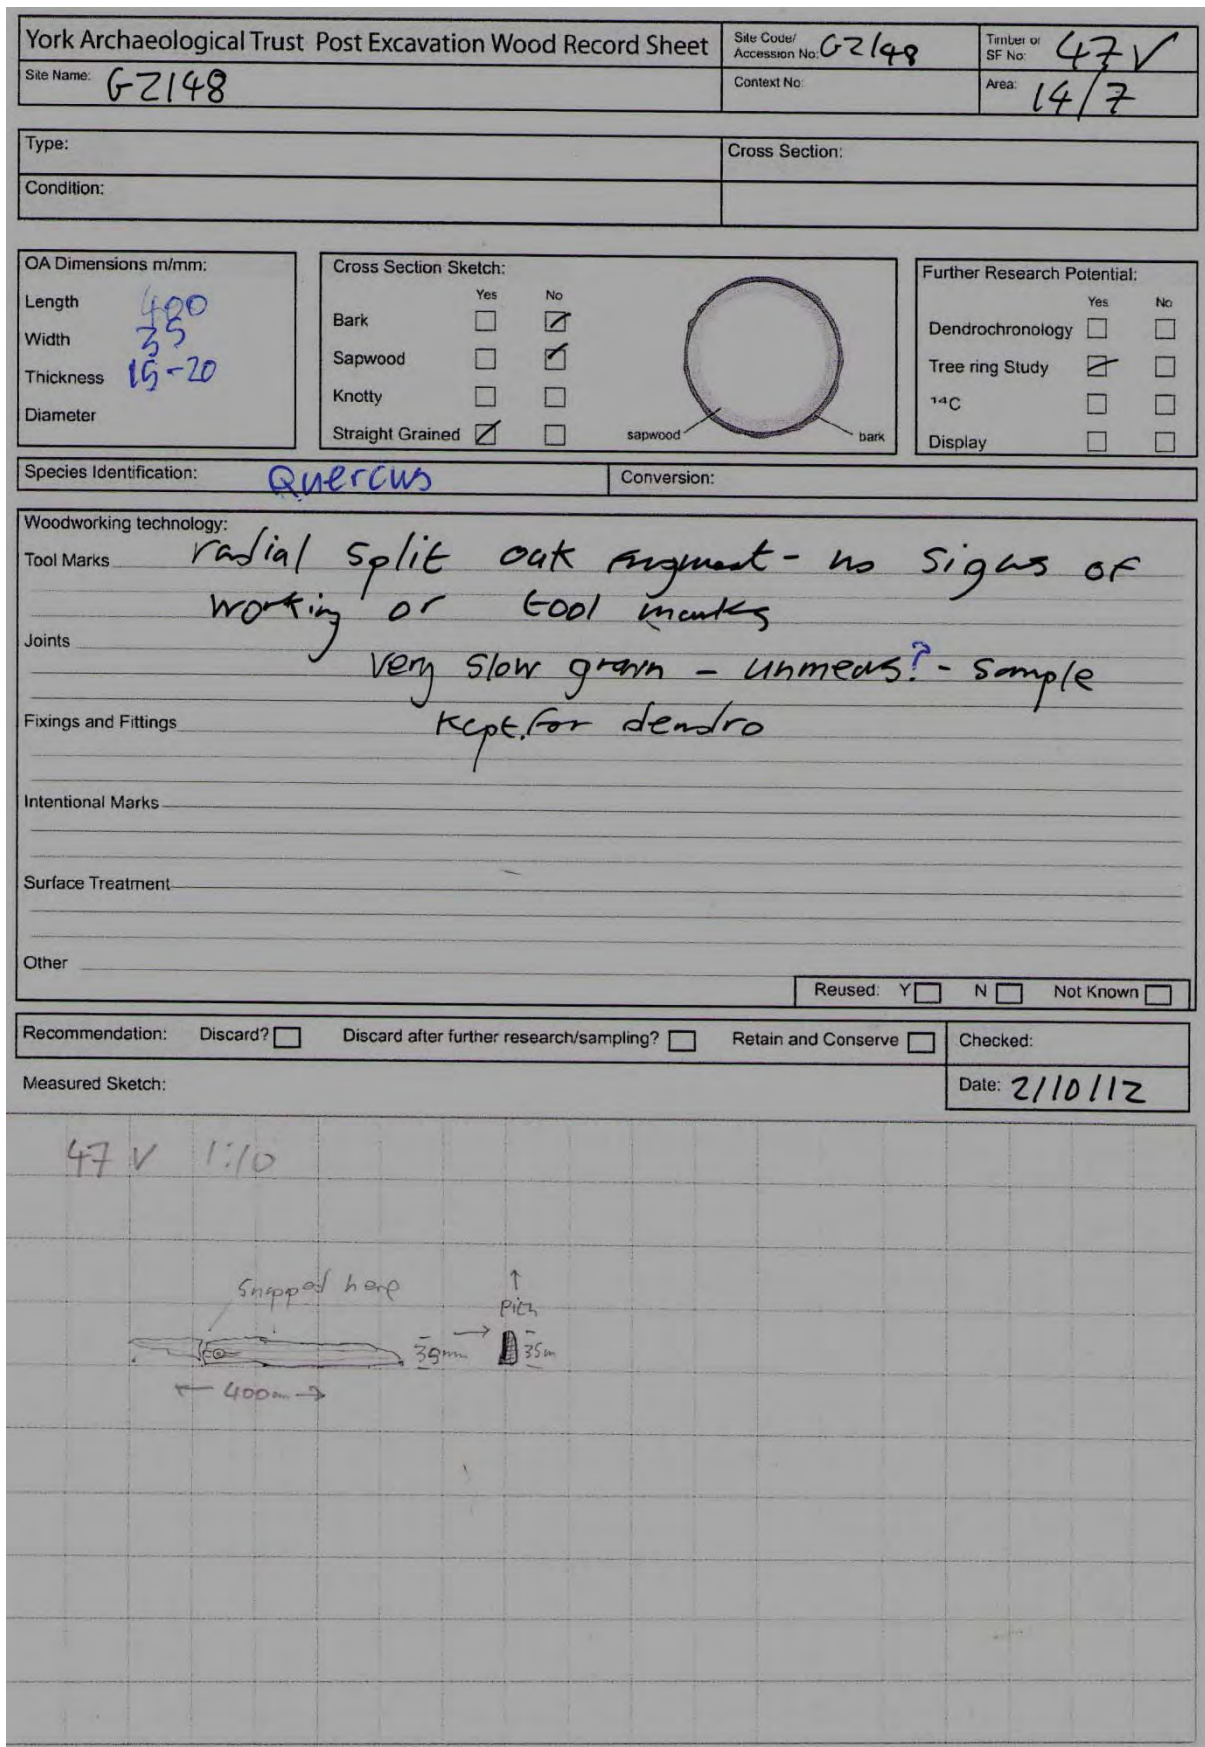 York Archaeological Trust Post Excavation Wood Record Sheet
Site Code/ Accession No: GZ148
Timber or SF No: 47V
Site Name: GZ148
Context No:
Area: 14/7
Type:
Cross Section:
Condition:
OA Dimensions m/mm:
Length 400
Width 35
Thickness 15-20
Diameter
Cross Section Sketch:
Yes No
Bark
Sapwood
Knotty
Straight Grained
sapwood
bark
Further Research Potential:
Yes No
Dendrochronology
Tree ring Study
14C
Display
Species Identification: Quercus
Conversion:
Woodworking technology:
Tool Marks radial split oak fragment - no signs of
working or tool marks
Joints
very slow grown - unmeas? - sample
Fixings and Fittings kept for dendro
Intentional Marks
Surface Treatment
Other
Reused: Y N Not Known
Recommendation: Discard? Discard after further research/sampling? Retain and Conserve
Checked:
Measured Sketch:
Date: 2/10/12
47 V 1:10
Snapped here
↑
Pith
→
35m
← 400m →